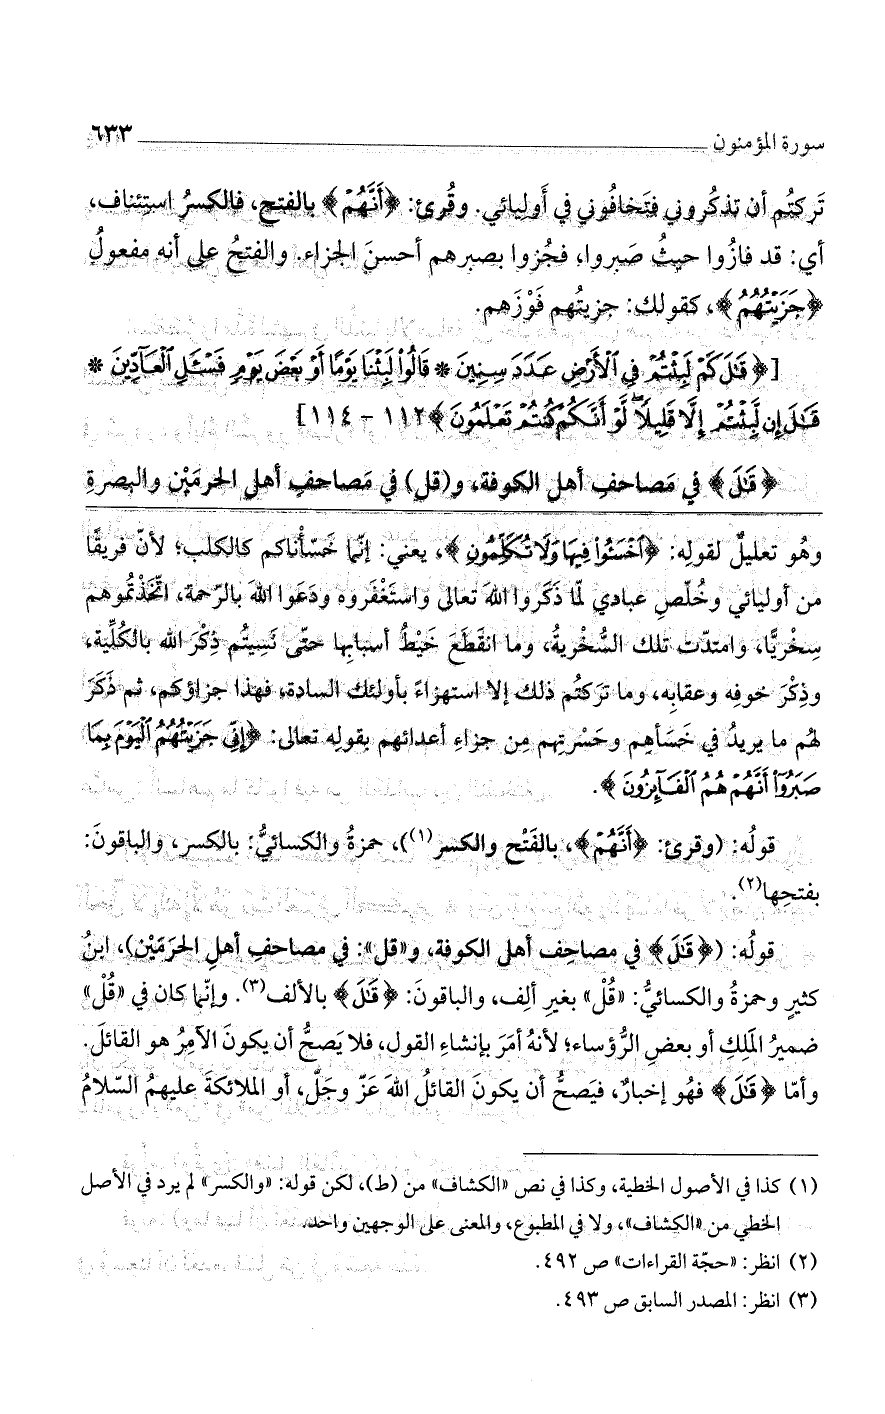 سورة المؤمنون ٦٣٣
تَركتُم أن تذكُروني فتَخافُوني في أوليائي. وقُرئ: ﴿أَنَّهُمْ﴾ بالفتح، فالكسرُ استِئناف،
أي: قد فازُوا حيثُ صَبروا، فجُزوا بصبرهم أحسنَ الجزاء. والفتحُ على أنه مفعولُ
﴿جَزَيْتُهُمُ﴾، كقولك: جزيتُهم فَوْزَهم.
[﴿قَالَ كَمْ لَبِثْتُمْ فِي الْأَرْضِ عَدَدَ سِنِينَ * قَالُوا لَبِثْنَا يَوْمًا أَوْ بَعْضَ يَوْمٍ فَسْـَٔلِ الْعَادِّينَ *
قَالَ إِن لَّبِثْتُمْ إِلَّا قَلِيلًا لَّوْ أَنَّكُمْ كُنتُمْ تَعْلَمُونَ﴾ ١١٢ - ١١٤]
﴿قَالَ﴾ في مَصاحفِ أهل الكوفة، و(قل) في مَصاحفِ أهلِ الحرمَيْن والبصرةِ
وهُو تعليلٌ لقولِه: ﴿اخْسَئُوا فِيهَا وَلَا تُكَلِّمُونِ﴾، يعني: إنّما خَسَأْناكم كالكلب؛ لأنّ فريقًا
من أوليائي وخُلَّصِ عبادي لمّا ذَكَروا اللهَ تعالى واستَغْفَروه ودَعَوا اللهَ بالرّحمة، اتَّخَذْتُموهم
سِخْريًّا، وامتدّت تلك السُّخْريةُ، وما انقَطَعَ خَيْطُ أسبابِها حتّى نَسِيتُم ذِكْرَ الله بالكُلِّية،
وذِكْرَ خوفِه وعقابِه، وما تَركتُم ذلك إلا استهزاءً بأولئك السادة، فهذا جزاؤكم، ثم ذَكَرَ
لهُم ما يريدُ في خَسَأهِم وحَسْرتِهم مِن جزاءِ أعدائهم بقولِه تعالى: ﴿إِنِّي جَزَيْتُهُمُ الْيَوْمَ بِمَا
صَبَرُوا أَنَّهُمْ هُمُ الْفَائِزُونَ﴾.
قولُه: (وقرئ: ﴿أَنَّهُمْ﴾، بالفَتْح والكسر(١))، حمزةُ والكسائيُّ: بالكسر، والباقونَ:
بفتحِها(٢).
قولُه: (﴿قَالَ﴾ في مصاحِف أهل الكوفة، و«قل»: في مصاحفِ أهلِ الحرَمَيْن)، ابنُ
كثيرٍ وحمزةُ والكسائيُّ: «قُلْ» بغيرِ ألِف، والباقونَ: ﴿قَالَ﴾ بالألف(٣). وإنّما كان في «قُلْ»
ضميرُ المَلِكِ أو بعضِ الرُّؤساء؛ لأنهُ أمَرَ بإنشاءِ القول، فلا يَصحُّ أن يكونَ الآمِرُ هو القائلَ.
وأمّا ﴿قَالَ﴾ فهُو إخبارٌ، فيَصحُّ أن يكونَ القائلُ اللهَ عَزّ وجَلّ، أو الملائكةَ عليهمُ السّلامُ
(١) كذا في الأصول الخطية، وكذا في نص «الكشاف» من (ط)، لكن قوله: «والكسر» لم يرد في الأصل
الخطي من «الكشاف»، ولا في المطبوع، والمعنى على الوجهين واحد.
(٢) انظر: «حجّة القراءات» ص ٤٩٢.
(٣) انظر: المصدر السابق ص ٤٩٣.